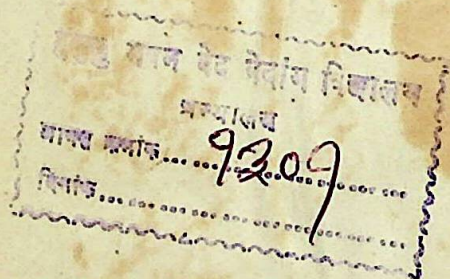 भवन वेद वेदांग विद्यालय
ग्रन्थालय
आगत क्रमांक......१३०१......
दिनांक......